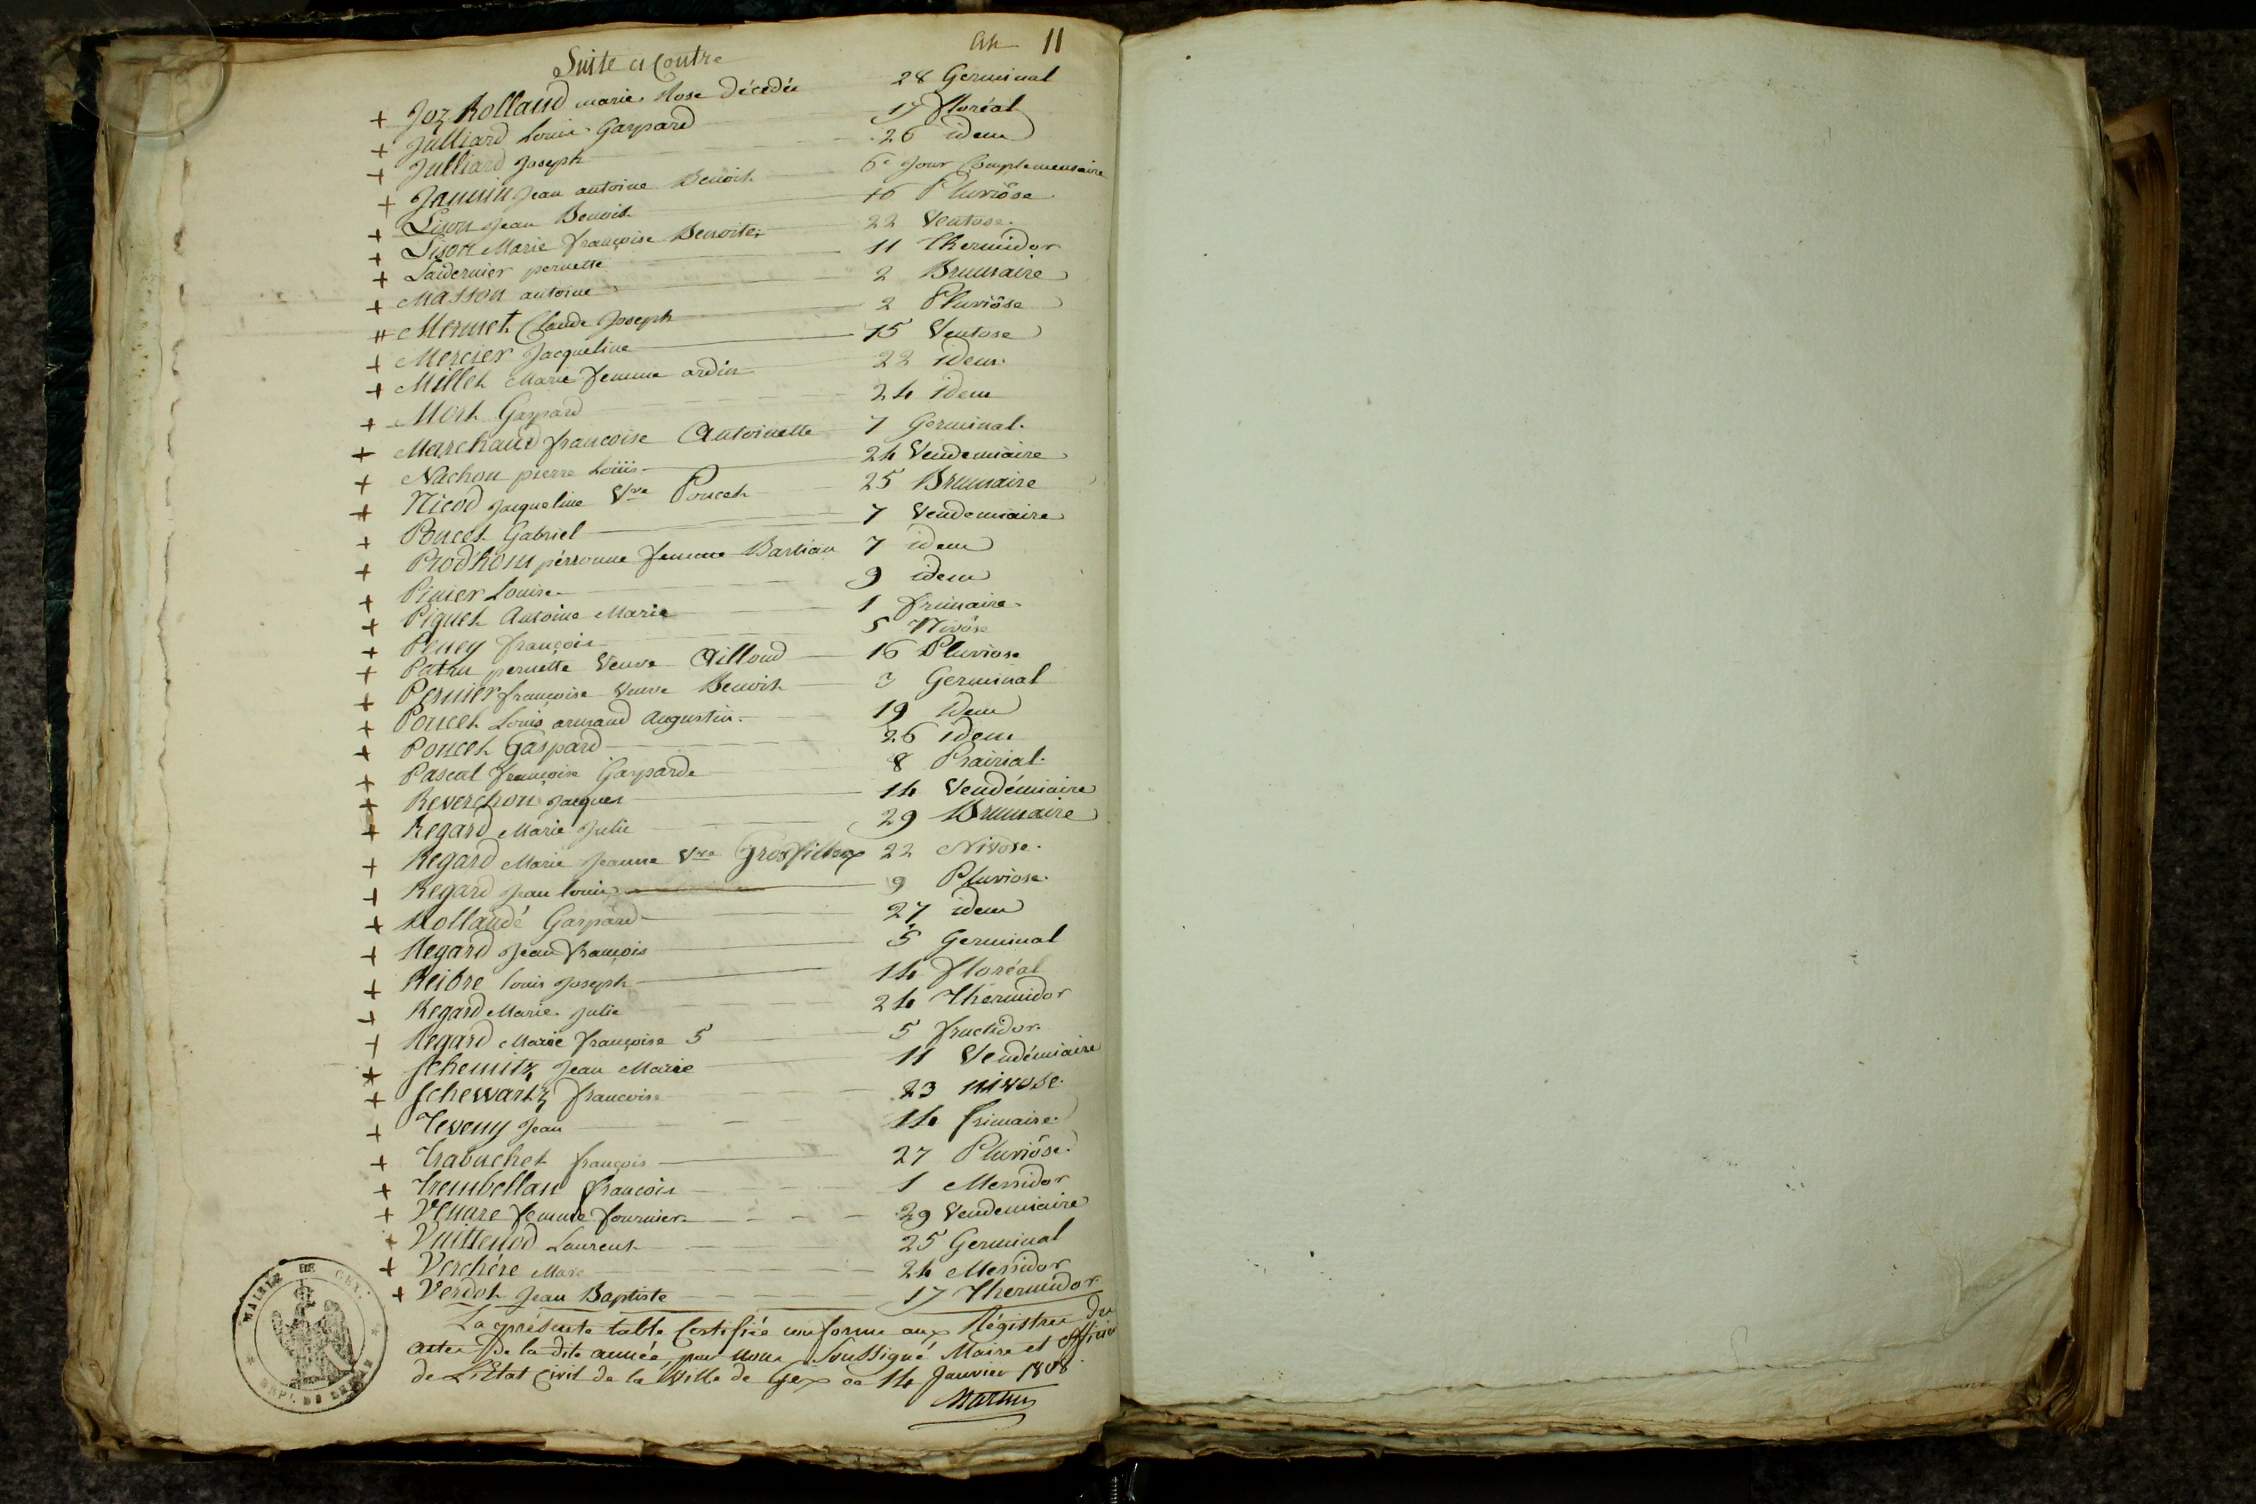 an 11
Suite ci Contre
+ Joz Rolland marie Rose décédée 28 Germinal
+ Julliard Louis Gaspard 17 floréal
+ Julliard Joseph 26 idem
+ Jannin Jean antoine Benoit 6e Jour Complementaire
+ Lison Jean Benoit 16 Pluviôse
+ Lison Marie françoise Benoite 22 Ventose
+ Laidernier pernette 11 Thermidor
+ Masson antoine 2 Brumaire
# Mermet Claude Joseph 2 Pluviôse
+ Mercier Jacqueline 15 Ventose
+ Millet Marie femme ardin 22 idem
+ Mort Gaspard 24 idem
+ Marchand françoise Antoinette 7 Germinal
+ Nachon pierre Loüis 24 Vendemiaire
+ Nicod Jacqueline Vve Poncet 25 Brumaire
+ Poncet Gabriel 7 Vendemiaire
+ Prodhom pérronne femme Bastian 7 idem
+ Pinier Louise 9 idem
+ Piquet Antoine Marie 1 frimaire
+ Peney françois 5 Nivôse
+ Patru pernette Veuve Ailloud 16 Pluviose
+ Pernier françoise Veuve Benoit 3 Germinal
+ Poncet Louis armand Augustin 19 idem
+ Poncet Gaspard 26 idem
+ Pascal françoise Gasparde 8 Prairial
+ Reverchon Jacques 14 Vendémiaire
+ Regard Marie Julie 29 Brumaire
+ Regard Marie Jeanne Vve Grosfillex 22 Nivose
+ Regard Jean louis 9 Pluviose
+ Rollandé Gaspard 27 idem
+ Regard Jean françois 5 Germinal
+ Reidre louis Joseph 14 floréal
+ Regard Marie Julie 24 Thermidor
+ Regard Marie françoise 5 5 fructidor
+ Schemitz Jean Marie 11 Vendémiaire
+ Schewartz francoise 23 nivose
+ Teveny Jean 14 frimaire
+ Trabuchet françois 27 Pluviôse
+ Trembellan françois 1 Messidor
+ Venare femme fournier 29 Vendemiaire
+ Vuillenod Laurent 25 Germinal
+ Verchère Marc 24 Messidor
+ Verdot Jean Baptiste 17 Thermidor
La présente table Certifiée conforme aux Régistres des
actes de la dite année par nous Soussigné Maire et officier
de L'Etat Civil de la Ville de Gex ce 14 Janvier 1808
Martin
MAIRIE DE GEX
DEPT. DU LEMAN